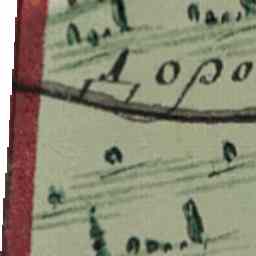 Доро